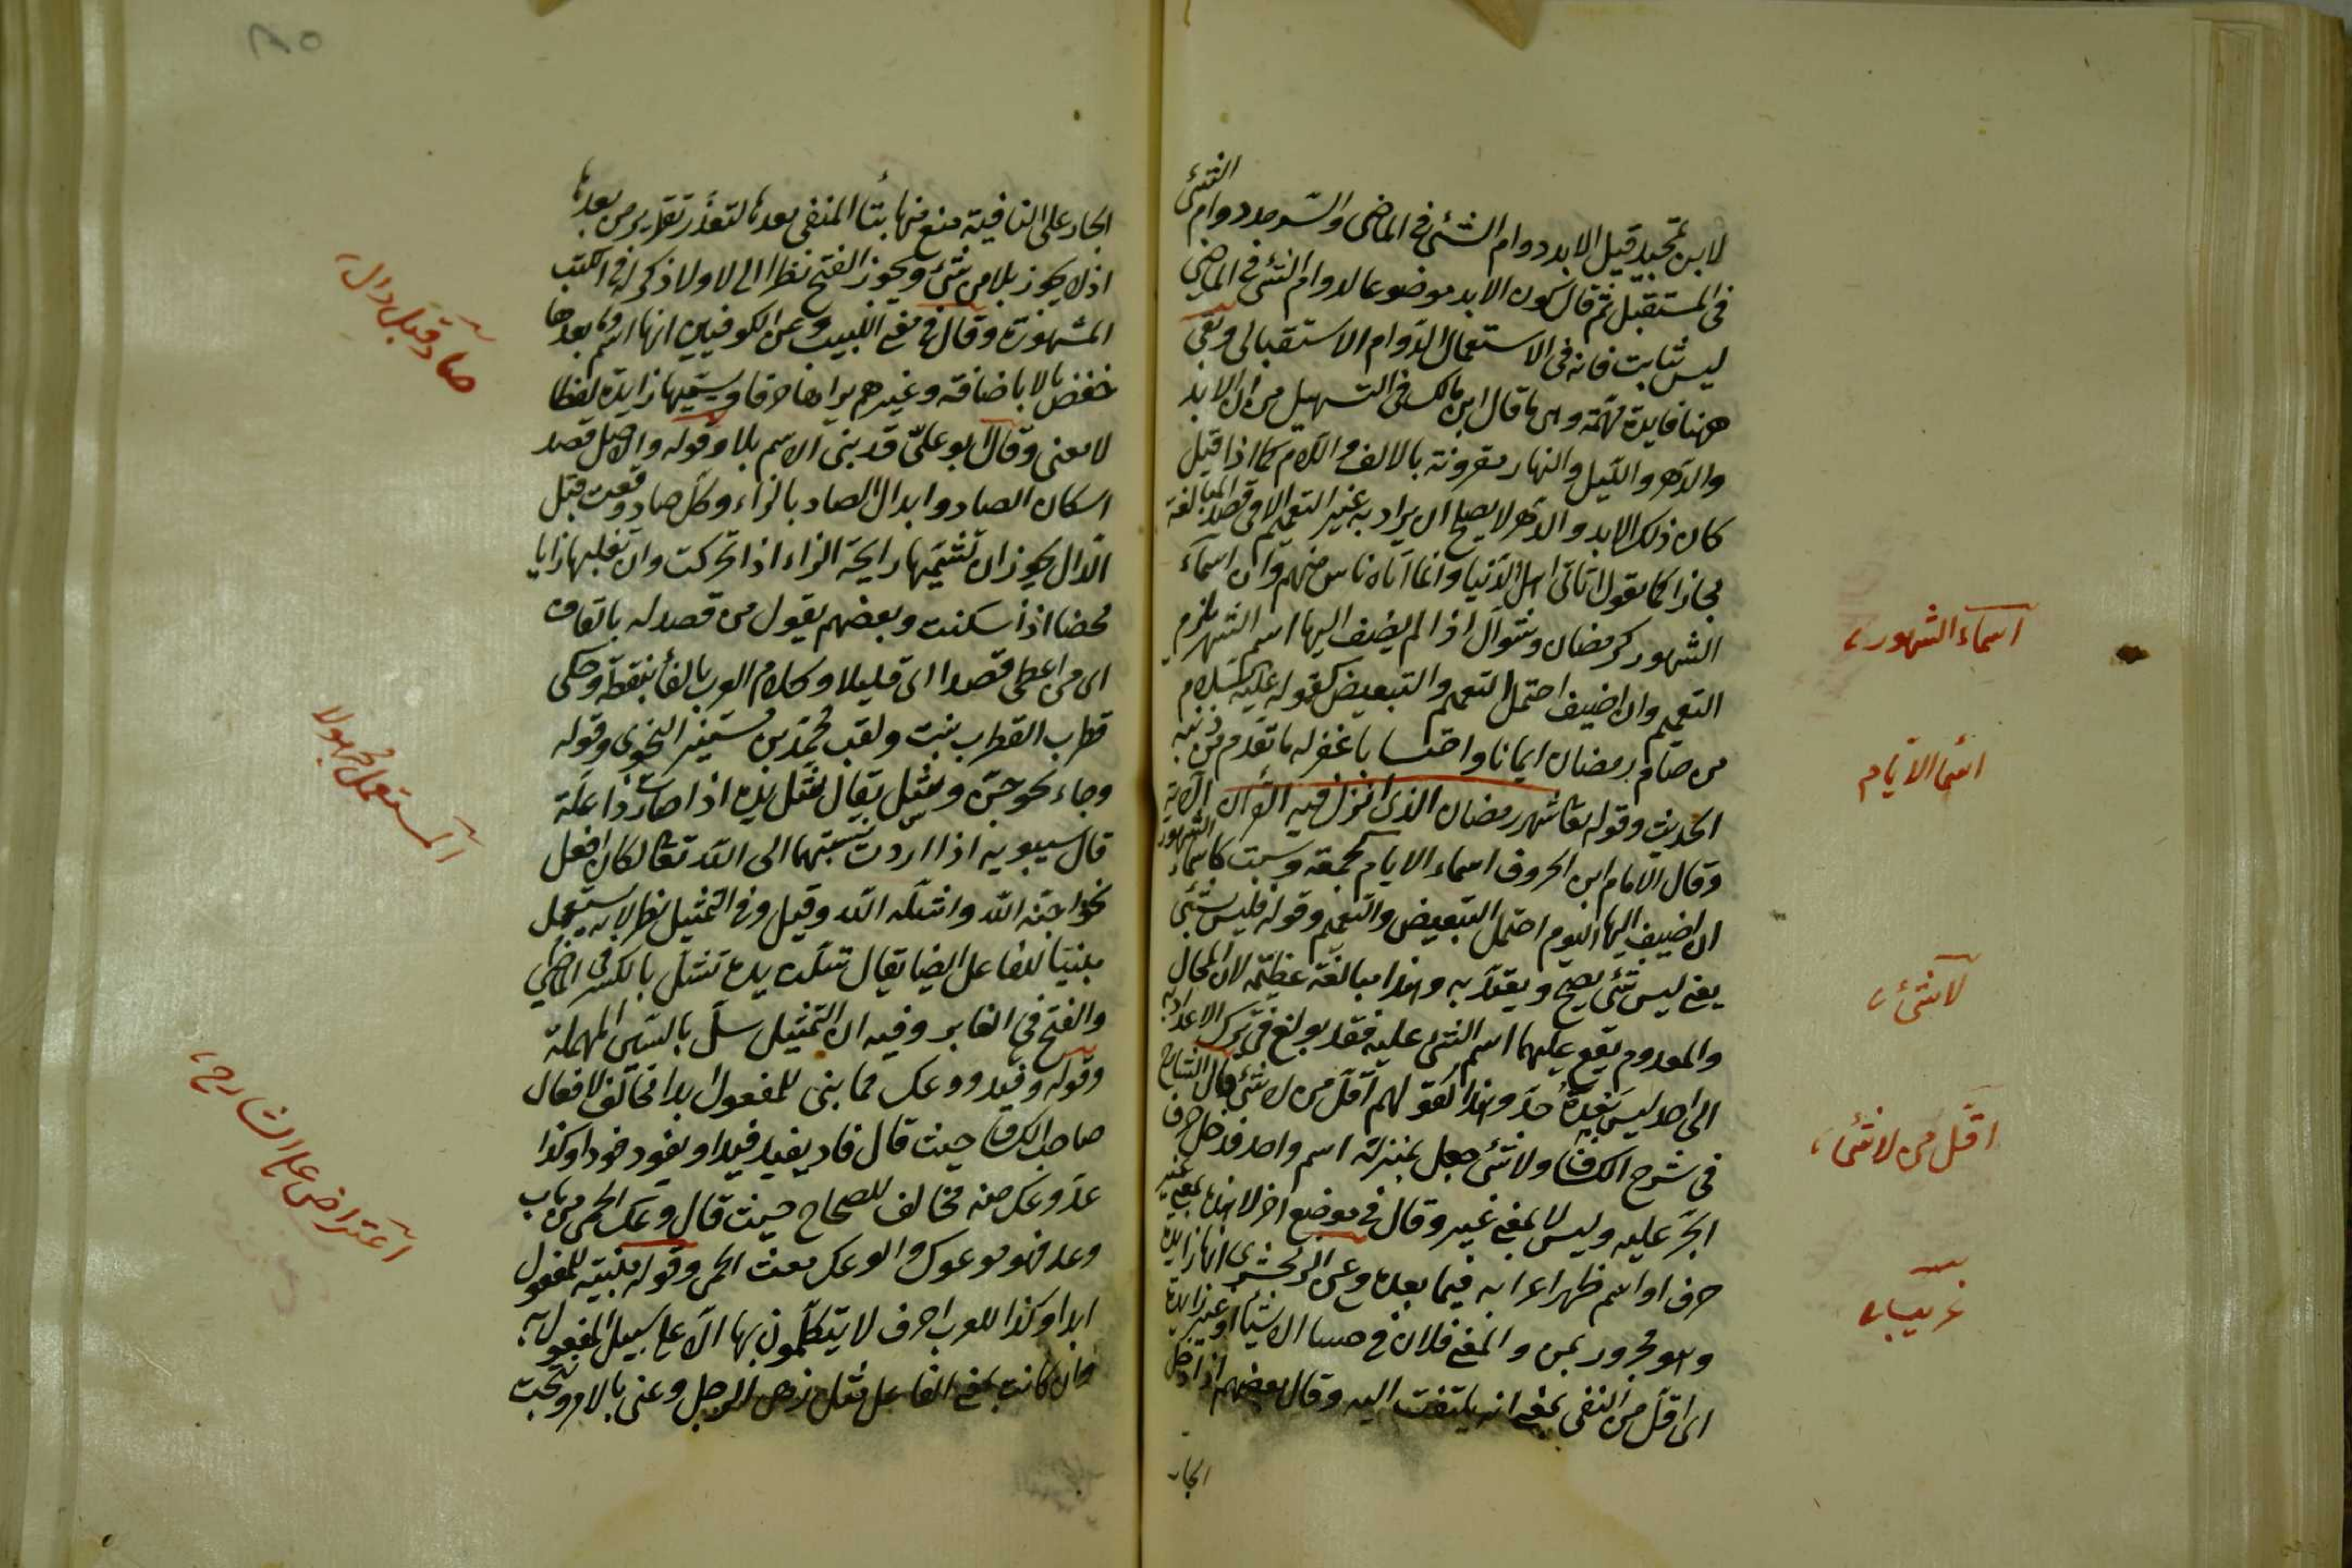 لابن تمجيد قيل الابد دوام الشئ فى الماضى والسرمد دوام الشئ
فى المستقبل ثم قال كون الابد موضوعا لدوام الشئ فى الماضى
ليس بثابت فانه فى الاستعمال الدوام الاستقبالى وبقى
ههنا فايدة مهمة وهى ما قال ابن مالك فى التسهيل من ان الابد
والدهر والليل والنهار مقرونة بالالف واللام كما اذا قيل
كان ذلك الابد والدهر لا يصلح ان يراد به غير التعميم الا فى قصد المبالغة
مجازا كما يقول اتانى اهل الدنيا وانما اتاه ناس منهم وان اسماء
الشهور كرمضان وشوال اذا لم يضف اليها اسم الشهر يلزم
التعميم وان اضيف احتمل التعميم والتبعيض كقوله عليه السلام
من صام رمضان ايمانا واحتسابا غفر له ما تقدم من ذنبه
الحديث وقوله تعا شهر رمضان الذى انزل فيه القرأن الاية
وقال الامام ابن الخروف اسماء الايام كجمعة وسبت كاسماء الشهور
ان اضيف اليها اليوم احتمل التبعيض والتعميم وقوله فليس بشئ
يعنى ليس بشئ يصح ويعتد به وهذا مبالغة عظيمة لان المحال
والمعدوم يقع عليهما اسم الشئ عليه فقد بولغ فى ترك الاعتداد به
الى احد ليس بعده حد وهذا كقولهم اقل من لا شئ قال الشارح
فى شرح الكشاف ولا شئ جعل بمنزلة اسم واحد فدخل حرف
الجر عليه وليس لا بمعنى غير وقال فى موضع اخر لا هذه بمعنى غير
حرف او اسم ظهر اعرابه فيما بعده وعن الزمخشرى انها زايدة
وهو مجرور بمن والمعنى فلان فى حساب الاشياء او غير زايدة
اى اقل من النفى بمعنى انه يلتفت اليه وقال بعضهم اذا دخل
الجار
اسماء الشهور
اسما الايام
لا شئ
اقل من لا شئ
غريب
الجار على النافية منع منها بتا المنفى بعدها لتعذر تقدير من بعدها
اذ لا يجوز بلا من شئ ويجوز الفتح نظرا الى لا ولا ذكر له فى الكتب
المشهورة وقال فى مغنى اللبيب وعن الكوفيين انها اسم وما بعدها
خفض بالاباضافة وغيرهم يراها حرفا ويسميها زايدة لفظا
لا معنى وقال ابو على قد بنى الاسم بلا وقوله والاصل قصد
اسكان الصاد وابدال الصاد بالزاء وكل صاد وقعت قبل
الدال يجوز ان تشمها رايحة الزاء اذا تحركت وان تقلبها زايا
محضا اذا سكنت وبعضهم يقول من قصد له بالقاف
اى من اعطى قصدا اى قليلا وكلام العرب بالفأ بنقطة وحكى
قطرب القطرب نبت ولقب محمد بن مستنير النحوى وقوله
وجاء نحو جن وشل يقال شل يده اذا صارت ذا علة
قال سيبويه اذا اردت نسبتهما الى الله تعالى كان افعل
نحو اجنه الله واشله الله وقيل وفى التمثيل نظر لانه يستعمل
مبنيا للفاعل ايضا يقال شلت يده تشل بالكسر فى الماضى
والفتح فى الغابر وفيه ان التمثيل سل بالسين المهملة
وقوله وفيد ووعك مما بنى للمفعول ابدا مخالف لافعال
صاحب الكشاف حيث قال فاد يفيد فيدا ويفود فودا وكذا
عد وعك منه مخالف للصحاح حيث قال وعك الحمى من باب
وعد فهو موعوك والوعك مغث الحمى وقوله مبنية للمفعول
ابدا وكذا للعرب احرف لا يتكلمون بها الا على سبيل المفعول به
وان كانت بمعنى الفاعل مثل زهى الرجل وعنى بالامر ونتجت
صاد قبل دال
المستعمل مجهولا
اعتراض على الشارح